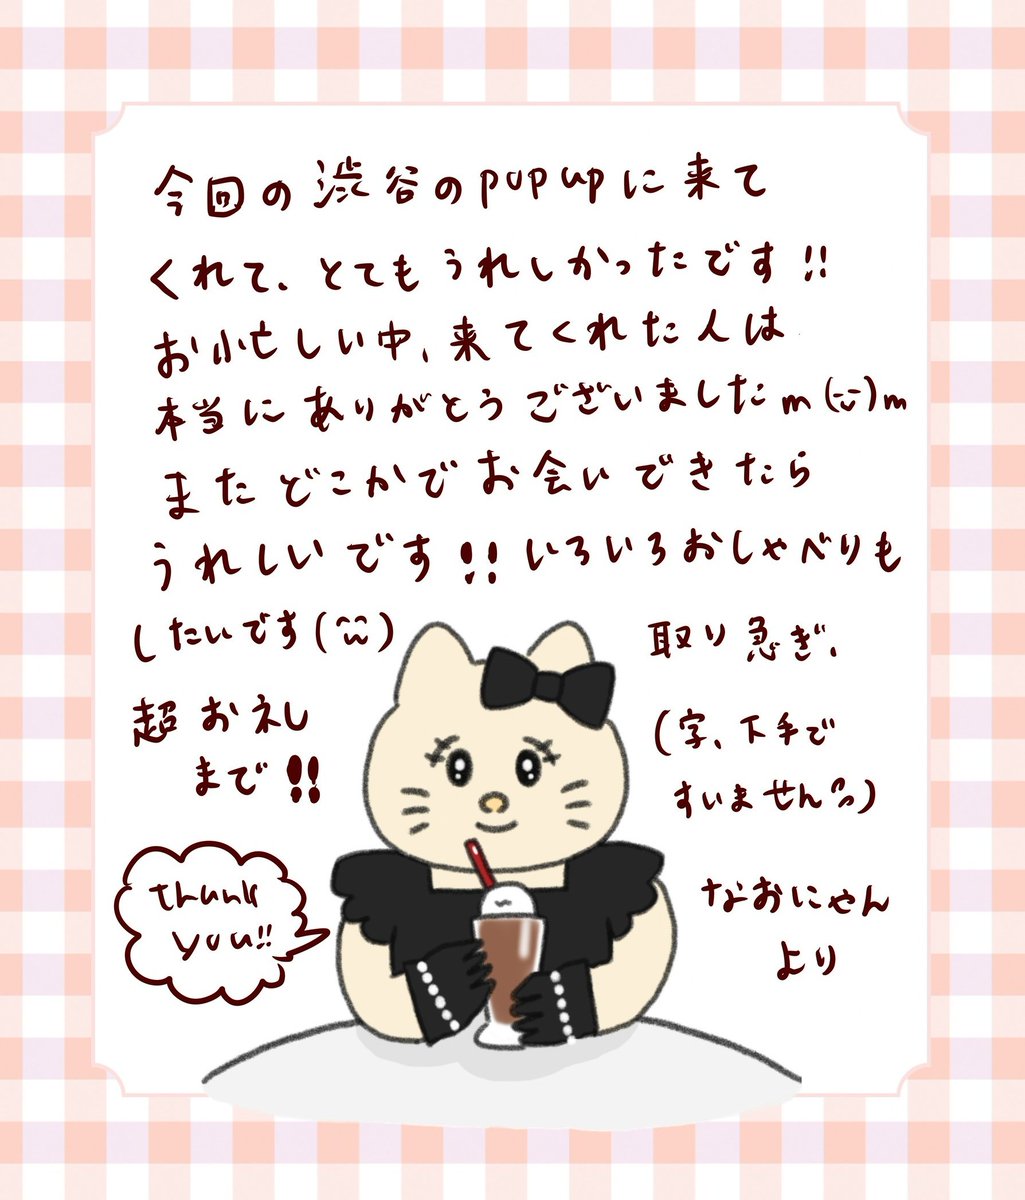 今回の渋谷のpopupに来て
くれて、とてもうれしかったです!!
お忙しい中、来てくれた人は
本当にありがとうございましたm(_ _)m
またどこかでお会いできたら
うれしいです!!いろいろおしゃべりも
したいです(^^)
取り急ぎ、
超お礼
まで!!
(字、下手で
すいません💦)
thank
you!!
なおにゃん
より